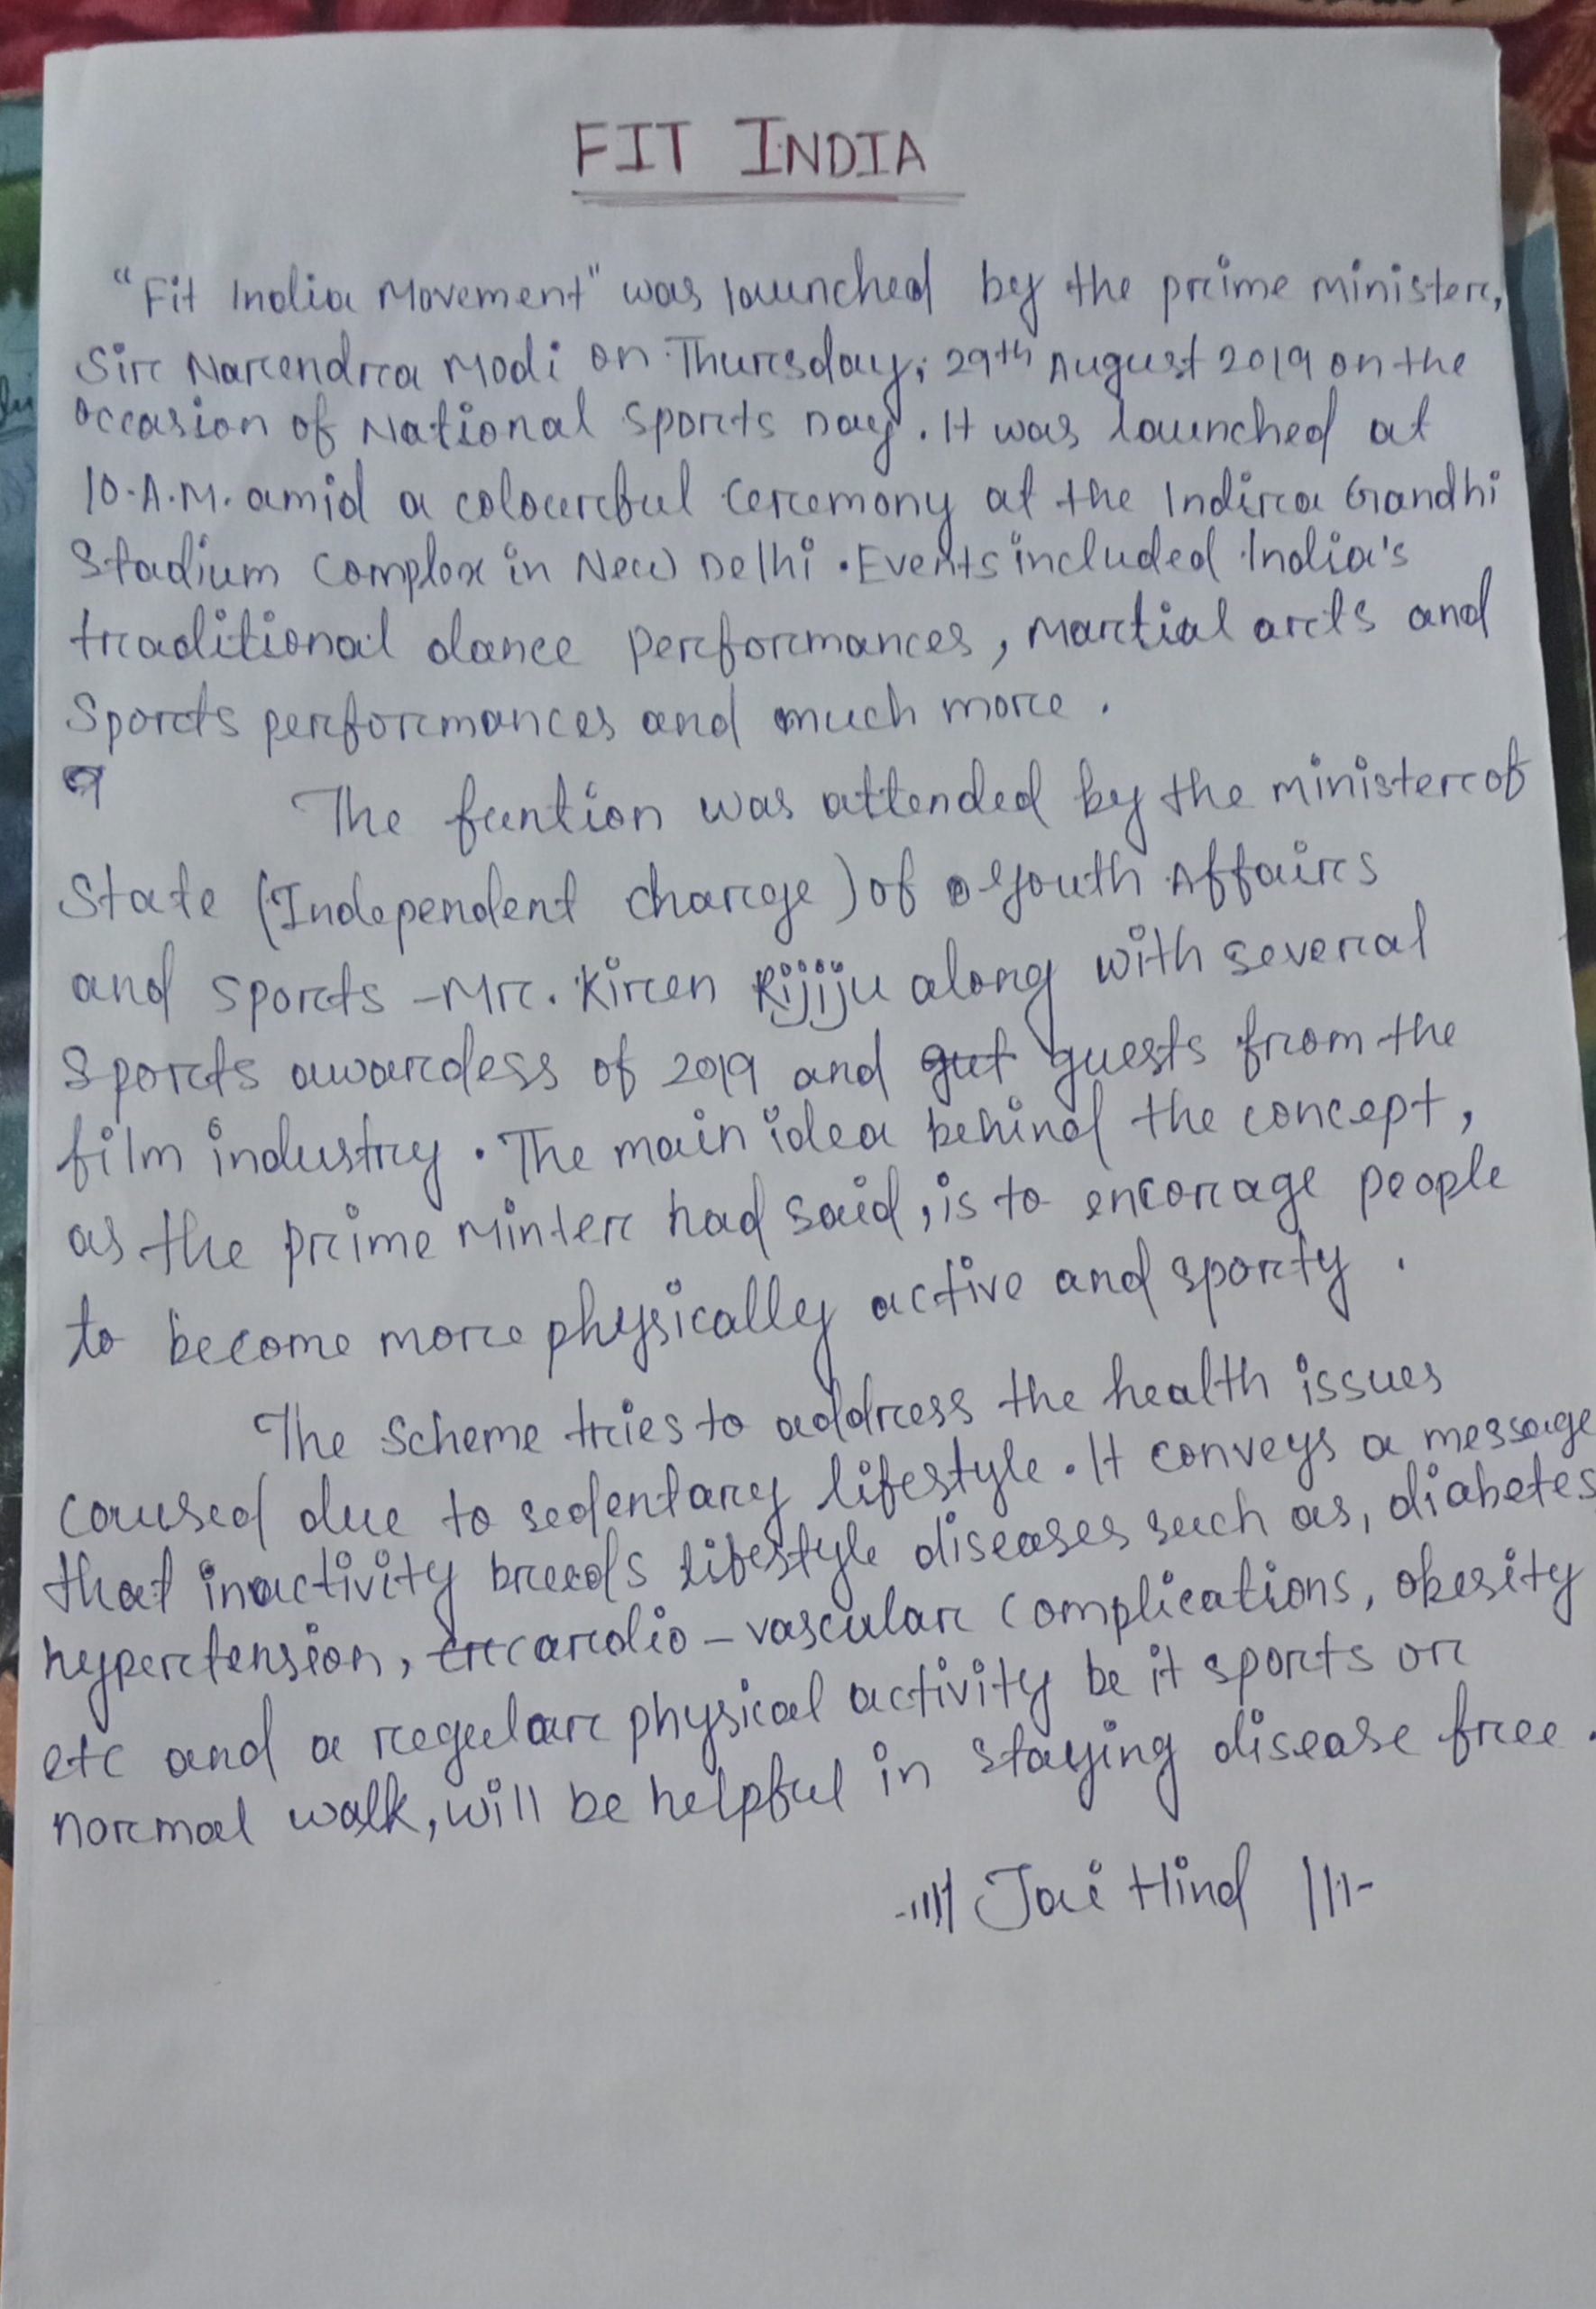 FIT INDIA
"Fit India Movement" was launched by the prime minister,
Sir Narendra Modi on Thursday, 29th August 2019 on the
occasion of National Sports Day. It was launched at
10.A.M. amid a colourful ceremony at the Indira Gandhi
Stadium Complex in New Delhi. Events included India's
traditional dance performances, martial arts and
Sports performances and much more.
The funtion was attended by the minister of
State (Independent charge) of Youth Affairs
and sports - Mr. Kiren Rijiju along with several
Sports awardess of 2019 and gut guests from the
film industry. The main idea behind the concept,
as the prime Minter had said, is to encorage people
to become more physically active and sporty.
The Scheme tries to address the health issues
caused due to sedentary lifestyle. It conveys a message
that inactivity breeds lifestyle diseases such as, diabetes
hypertension, cardio-vascular complications, obesity
etc and a regular physical activity be it sports or
normal walk, will be helpful in staying disease free.
Jai Hind